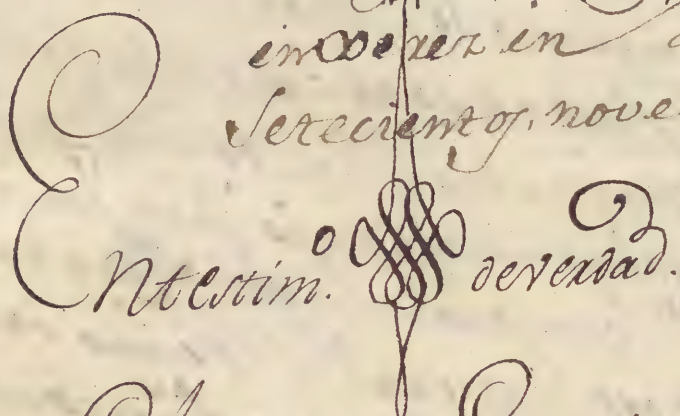 en Xerez en
Setecientos, nove
En testim.o de verdad.